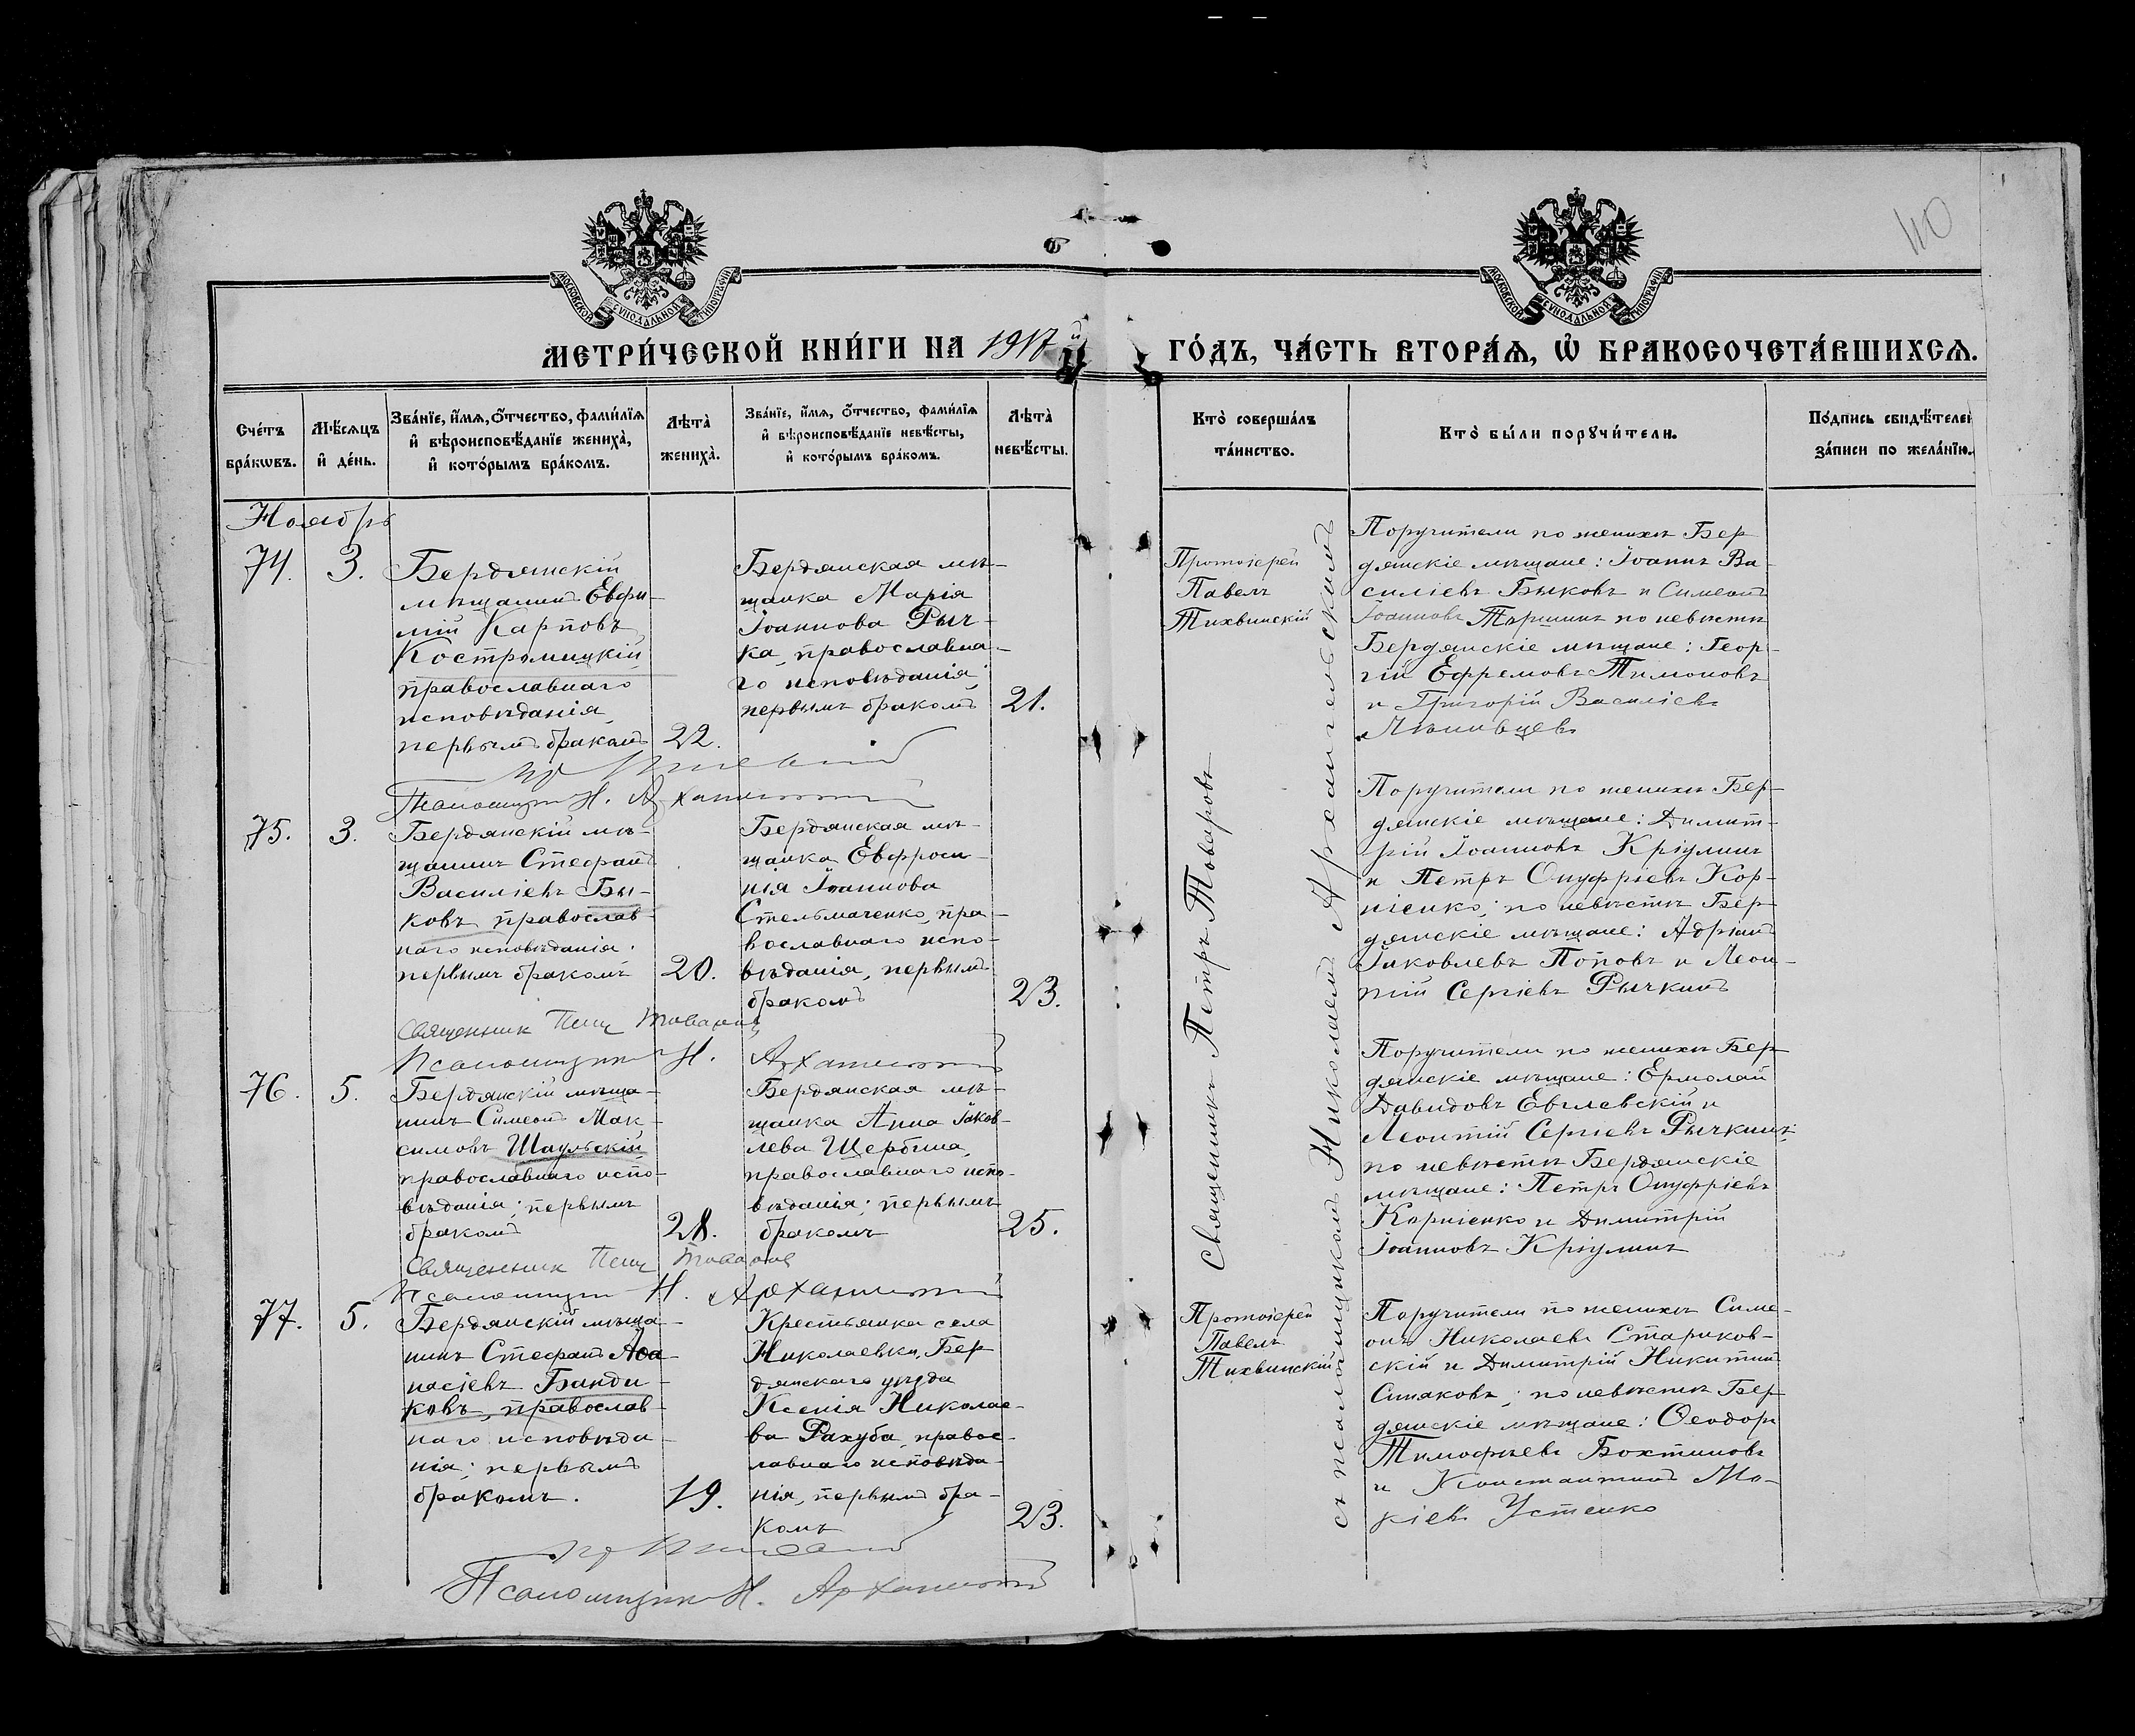 110
МОСКОВСКОЙ СѴНОДАЛЬНОЙ ТИПОГРАФІИ
МОСКОВСКОЙ СѴНОДАЛЬНОЙ ТИПОГРАФІИ
МЕТРИ́ЧЕСКОЙ КНИ́ГИ НА 1917й ГО́ДЪ, ЧА́СТЬ ВТОРА́Ѧ, Ѡ҆ БРАКОСОЧЕТА́ВШИХСѦ.
Сче́тъ бра́кѡвъ.
Мѣ́сѧцъ и҆ де́нь.
Зва́нїе, и҆́мѧ, ѻ҆́тчество, фами́лїѧ
и҆ вѣроисповѣ́данїе жениха̀,
и҆ кото́рымъ бра́комъ.
Лѣ́та̀ жениха̀.
Зва́нїе, и҆́мѧ, ѻ҆́тчество, фами́лїѧ
и҆ вѣроисповѣ́данїе невѣ́сты,
и҆ кото́рымъ бра́комъ.
Лѣ́та̀ невѣ́сты.
Кто̀ соверша́лъ
та́инство.
Кто̀ бы́ли порꙋчи́тели.
По́дпись свидѣ́телей
за́писи по жела́нїю.
Ноябрь
74.
3.
Бердянскій
мѣщанинъ Евфи-
мій Карповъ
Костромицкій
православнаго
исповѣданія,
первымъ бракомъ
22.
Бердянская мѣ-
щанка Марія
Іоаннова Рыч-
ка, православна-
го исповѣданія,
первымъ бракомъ
21.
Протоіерей
Павелъ
Тихвинскій
Поручители по женихѣ Бер
дянскіе мѣщане: Іоаннъ Ва-
силіевъ Быковъ и Симеонъ
Іоанновъ Паршинъ по невѣстѣ
Бердянскіе мѣщане: Геор-
гій Ефремовъ Тимоновъ
и Григорій Василіевъ
Псаломщикъ Н. Архангельскій
75.
3.
Бердянскій мѣ-
щанинъ Стефанъ
Василіевъ Бы-
ковъ, православ-
наго исповѣданія.
первымъ бракомъ
20.
Бердянская мѣ-
щанка Евфроси-
нія Іоаннова
Стельмаченко, пра-
вославнаго испо-
вѣданія, первымъ
бракомъ
23.
Поручители по женихѣ Бер-
дянскіе мѣщане: Димит-
рій Іоанновъ Кріулинъ
и Петръ Онуфріевъ Кор-
ніенко; по невѣстѣ Бер
дянскіе мѣщане: Адріанъ
Іаковлевъ Поповъ и Леон-
тій Сергіевъ Рычкинъ
Священникъ Петр Товаровъ
Псаломщикъ Н. Архангельскій
76.
5.
Бердянскій мѣща-
нинъ Симеонъ Мак-
симовъ Шаульскій,
православнаго испо-
вѣданія; первымъ
бракомъ
28.
Бердянская мѣ-
щанка Анна Іаков-
лева Щербина,
православнаго испо-
вѣданія; первымъ
бракомъ
25.
Поручители по женихѣ Бер
дянскіе мѣщане: Ермолай
Давидовъ Евглевскій и
Леонтій Сергіевъ Рычкинъ;
по невѣстѣ Бердянскіе
мѣщане: Петръ Онуфріевъ
Корніенко и Димитрій
Іоанновъ Кріулинъ
Священникъ Петр Товаровъ
Псаломщикъ Н. Архангельскій
77.
5.
Бердянскій мѣща-
нинъ Стефанъ Аѳа-
насіевъ Банди-
ковъ, православ-
наго исповѣда-
нія; первымъ
бракомъ.
19.
Крестьянка села
Николаевки, Бер
дянскаго уѣзда
Ксенія Николае-
ва Рахуба, правос-
лавнаго исповѣда-
нія, первымъ бра-
комъ
23.
Протоіерей
Павелъ
Тихвинскій
Поручители по женихѣ Симе-
онъ Николаевъ Стариков-
скій и Димитрій Никитинъ
Синяковъ; по невѣстѣ Бер
дянскіе мѣщане: Ѳеодоръ
Тимофѣевъ Бохтиновъ
и Константинъ Мо-
кіевъ Устенко
Псаломщикъ Н. Архангельскій
Священникъ Петръ Товаровъ
съ псаломщикомъ Николаемъ Архангельскимъ